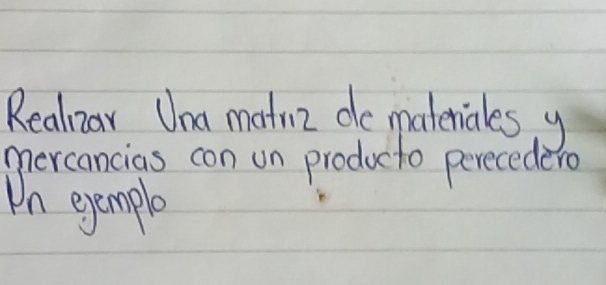 Realizar Una matriz de materiales y
mercancias con un producto perecedero
Un ejemplo